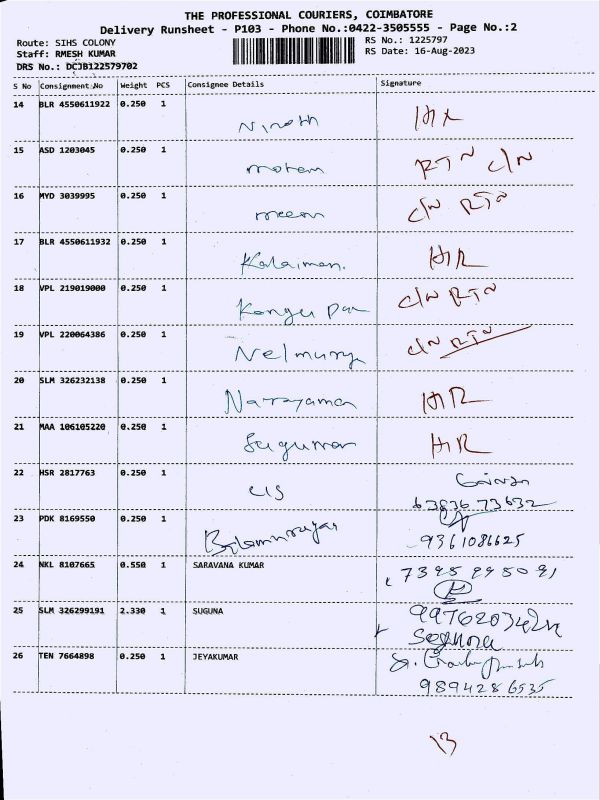 THE PROFESSIONAL COURIERS, COIMBATORE
Delivery Runsheet - P103 - Phone No.:0422-3505555 - Page No.:2
Route: SIHS COLONY RS No.: 1225797
Staff: RMESH KUMAR RS Date: 16-Aug-2023
DRS No.: DCJB122579702
S No Consignment No Weight PCS Consignee Details Signature
14 BLR 4550611922 0.250 1 Ninoth
15 ASD 1203045 0.250 1 RTN C/N
16 MYD 3039995 0.250 1 C/N RTN
17 BLR 4550611932 0.250 1 Kalaiman. HR
18 VPL 219019000 0.250 1 C/N RTN
19 VPL 220064386 0.250 1 C/N RTN
20 SLM 326232138 0.250 1 Narayaman HR
21 MAA 106105220 0.250 1 Suguman HR
22 HSR 2817763 0.250 1 CIS
63836 73632
23 PDK 8169550 0.250 1
9361086625
24 NKL 8107665 0.550 1 SARAVANA KUMAR
25 SLM 326299191 2.330 1 SUGUNA
26 TEN 7664898 0.250 1 JEYAKUMAR
9894286535
13